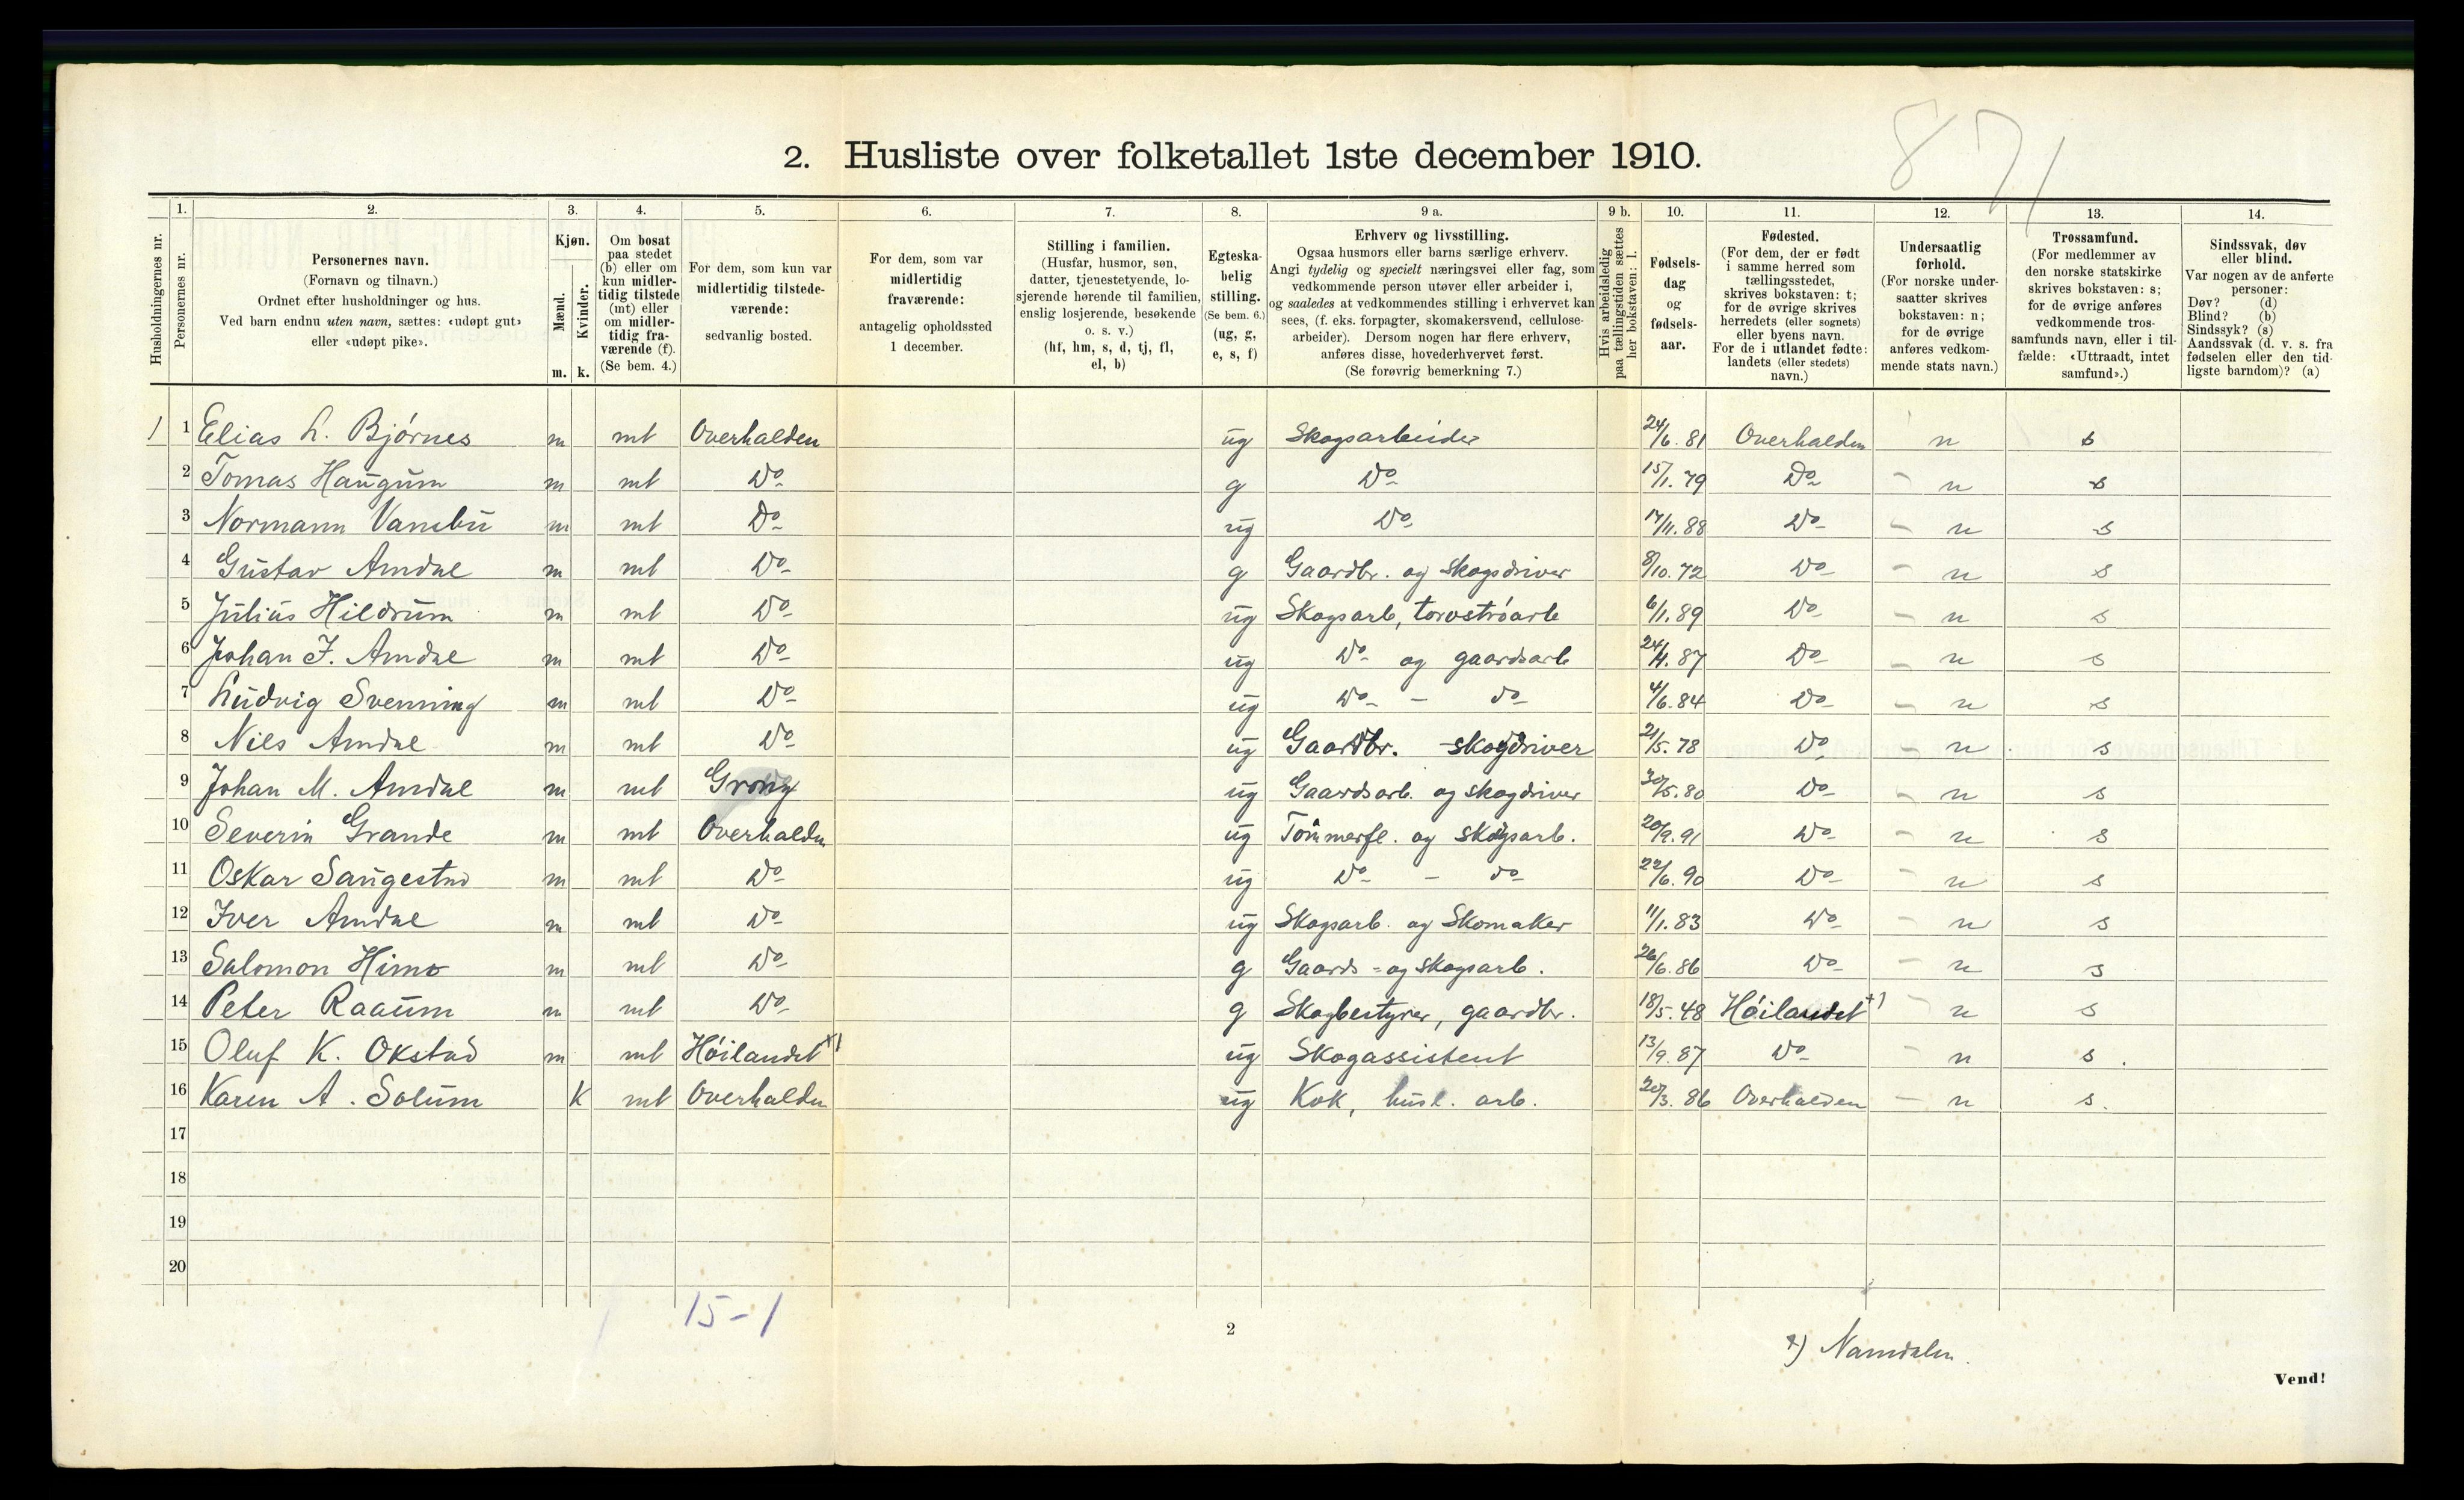 871
2. Husliste over folketallet 1ste december 1910.
1. 2. 3. 4. 5. 6. 7. 8. 9 a. 9 b. 10. 11. 12. 13. 14.
Husholdningernes nr.
Personernes nr.
Personernes navn.
(Fornavn og tilnavn.)
Ordnet efter husholdninger og hus.
Ved barn endnu uten navn, sættes: «udøpt gut»
eller «udøpt pike».
Kjøn.
Mænd.
Kvinder.
m. k.
Om bosat
paa stedet
(b) eller om
kun midler-
tidig tilstede
(mt) eller
om midler-
tidig fra-
værende (f).
(Se bem. 4.)
For dem, som kun var
midlertidig tilstede-
værende:
sedvanlig bosted.
For dem, som var
midlertidig
fraværende:
antagelig opholdssted
1 december.
Stilling i familien.
(Husfar, husmor, søn,
datter, tjenestetyende, lo-
sjerende hørende til familien,
enslig losjerende, besøkende
o. s. v.)
(hf, hm, s, d, tj, fl,
el, b)
Egteska-
belig
stilling.
(Se bem. 6.)
(ug, g,
e, s, f)
Erhverv og livsstilling.
Ogsaa husmors eller barns særlige erhverv.
Angi tydelig og specielt næringsvei eller fag, som
vedkommende person utøver eller arbeider i,
og saaledes at vedkommendes stilling i erhvervet kan
sees, (f. eks. forpagter, skomakersvend, cellulose-
arbeider). Dersom nogen har flere erhverv,
anføres disse, hovederhvervet først.
(Se forøvrig bemerkning 7.)
Hvis arbeidsledig
paa tællingstiden sættes
her bokstaven: l.
Fødsels-
dag
og
fødsels-
aar.
Fødested.
(For dem, der er født
i samme herred som
tællingsstedet,
skrives bokstaven: t;
for de øvrige skrives
herredets (eller sognets)
eller byens navn.
For de i utlandet fødte:
landets (eller stedets)
navn.)
Undersaatlig
forhold.
(For norske under-
saatter skrives
bokstaven: n;
for de øvrige
anføres vedkom-
mende stats navn.)
Trossamfund.
(For medlemmer av
den norske statskirke
skrives bokstaven: s;
for de øvrige anføres
vedkommende tros-
samfunds navn, eller i til-
fælde: «Uttraadt, intet
samfund».)
Sindssvak, døv
eller blind.
Var nogen av de anførte
personer:
Døv? (d)
Blind? (b)
Sindssyk? (s)
Aandssvak (d. v. s. fra
fødselen eller den tid-
ligste barndom)? (a)
1 1 Elias L. Bjørnes m mt Overhalden ug Skogsarbeider 24/6. 81 Overhalden n s
2 Tomas Haugum m mt Do g Do 15/1. 79 Do - n s
3 Normann Vansbu m mt Do ug Do 17/11. 88 Do - n s
4 Gustav Amdal m mt Do g Gaardbr. og skogsdriver 8/10. 72 Do - n s
5 Julius Hildrum m mt Do ug Skogsarb, torvstrøarb 6/1. 89 Do - n s
6 Johan J. Amdal m mt Do ug Do og gaardsarb 24/4. 87 Do - n s
7 Ludvig Svenning m mt Do ug Do - do 4/6. 84 Do - n s
8 Nils Amdal m mt Do ug Gaardbr. - skogdriver 21/5. 78 Do - n s
9 Johan M. Amdal m mt Grong ug Gaardsarb. og skogdriver 30/5. 80 Do - n s
10 Severin Grande m mt Overhalden ug Tømmerfl. og skogsarb. 20/9. 91 Do - n s
11 Oskar Saugestad m mt Do ug Do - do 22/6. 90 Do - n s
12 Iver Amdal m mt Do ug Skogsarb. og Skomaker 11/1. 83 Do - n s
13 Salomon Himo m mt Do g Gaards- og skogsarb. 26/6. 86 Do - n s
14 Peter Raaum m mt Do g Skogbestyrer, gaardbr. 18/5. 48 Høilandet x) - n s
15 Oluf K. Okstad m mt Høilandet x) ug Skogassistent 13/9. 87 Do - n s.
16 Karen A. Solum k mt Overhalden ug Kok, husl. arb. 20/3. 86 Overhalden - n s.
17
18
19
20
15-1
2
x) Namdalen.
Vend!